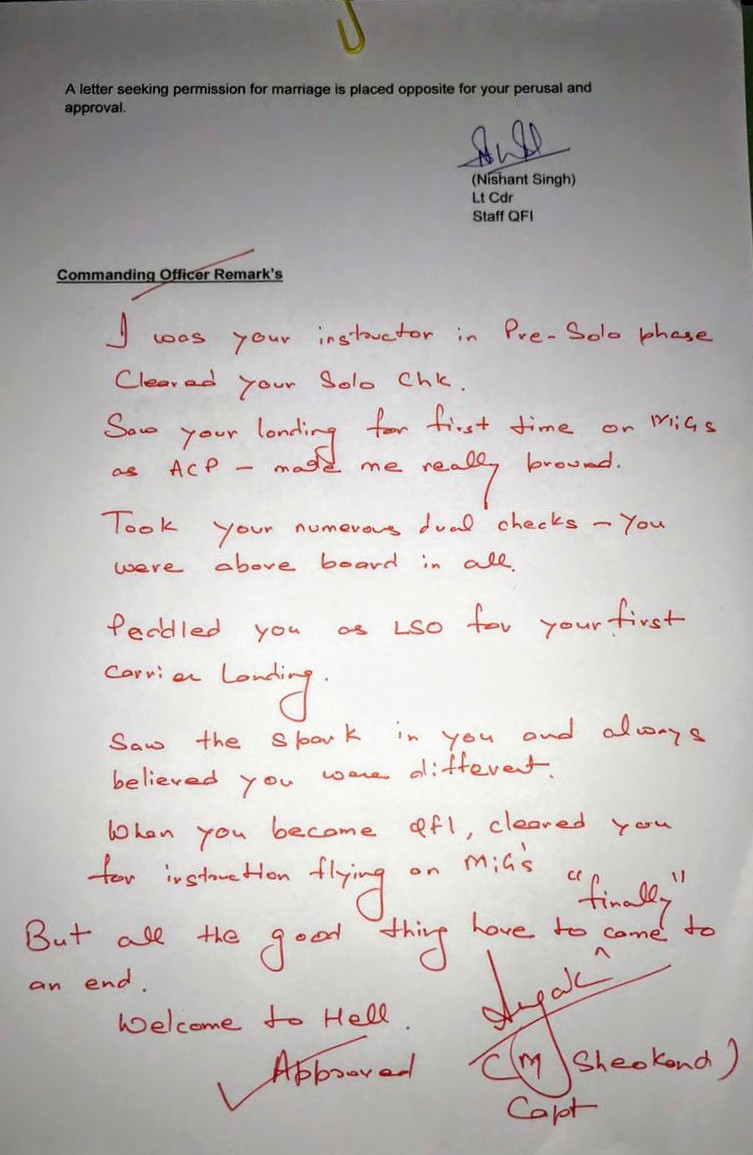 A letter seeking permission for marriage is placed opposite for your perusal and
approval.
(Nishant Singh)
Lt Cdr
Staff QFI
Commanding Officer Remark's
I was your instructor in Pre-Solo phase
Cleared your Solo Chk.
Saw your landing for first time on MiGs
as ACP - made me really pround.
Took your numerous dual checks - You
were above board in all.
Peddled you as LSO for your first
Carrier Landing.
Saw the spark in you and always
believed you were different.
When you become QFI, cleared you
for instruction flying on MiG's
"finally"
But all the good thing have to come to
an end.
Welcome to Hell.
Approved
(M Sheokand)
Capt